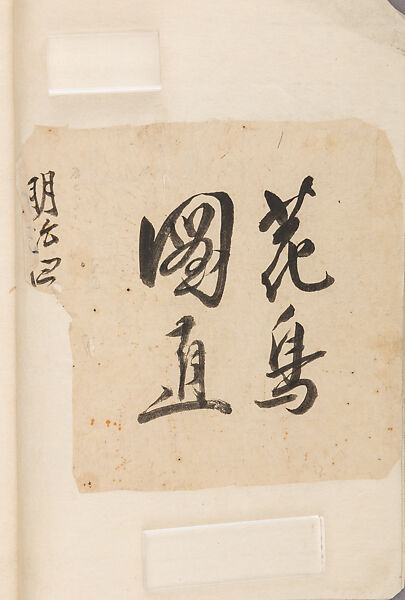 花鳥
圖直
明治四